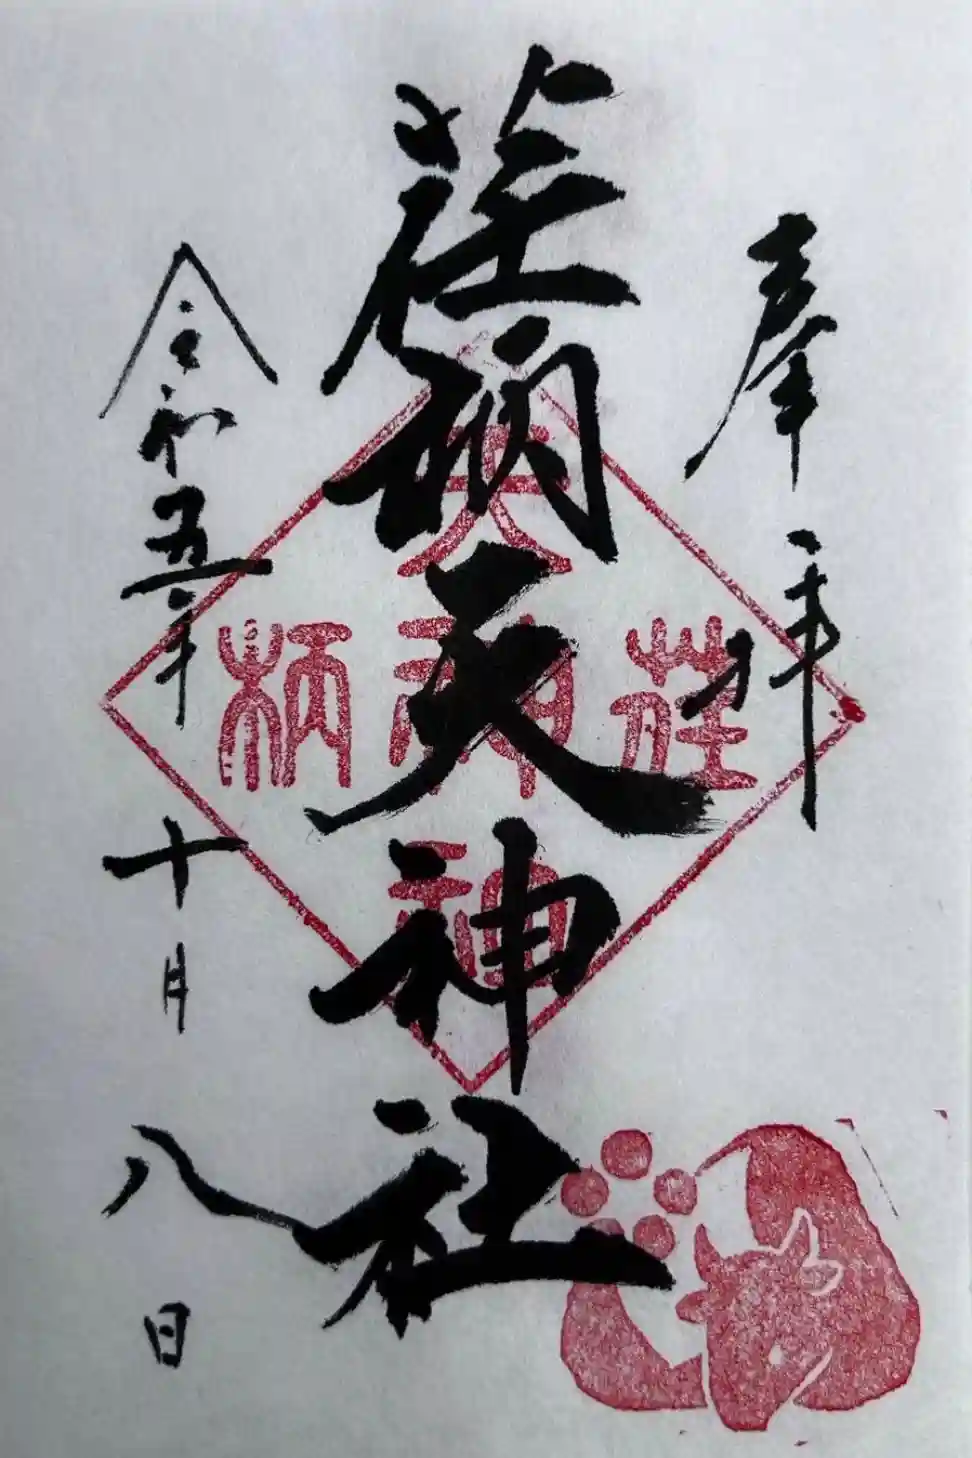 奉拝
荏柄天神社
令和五年十月八日
天
荏
柄
神